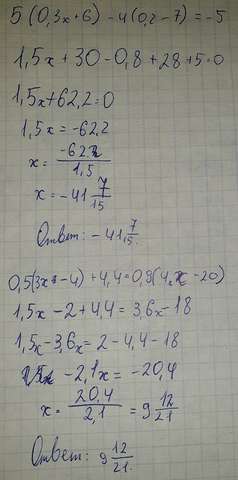 5 (0,3x+6) - 4(0,2-7) = -5
1,5x + 30 - 0,8 + 28 + 5 = 0
1,5x + 62,2 = 0
1,5x = -62,2
x = -62,2/1,5
x = -41 7/15
Ответ: -41 7/15.
0,5(3x-4) + 4,4 = 0,9(4x-20)
1,5x - 2 + 4,4 = 3,6x - 18
1,5x - 3,6x = 2 - 4,4 - 18
-2,1x = -20,4
x = 20,4/2,1 = 9 12/21
Ответ: 9 12/21.